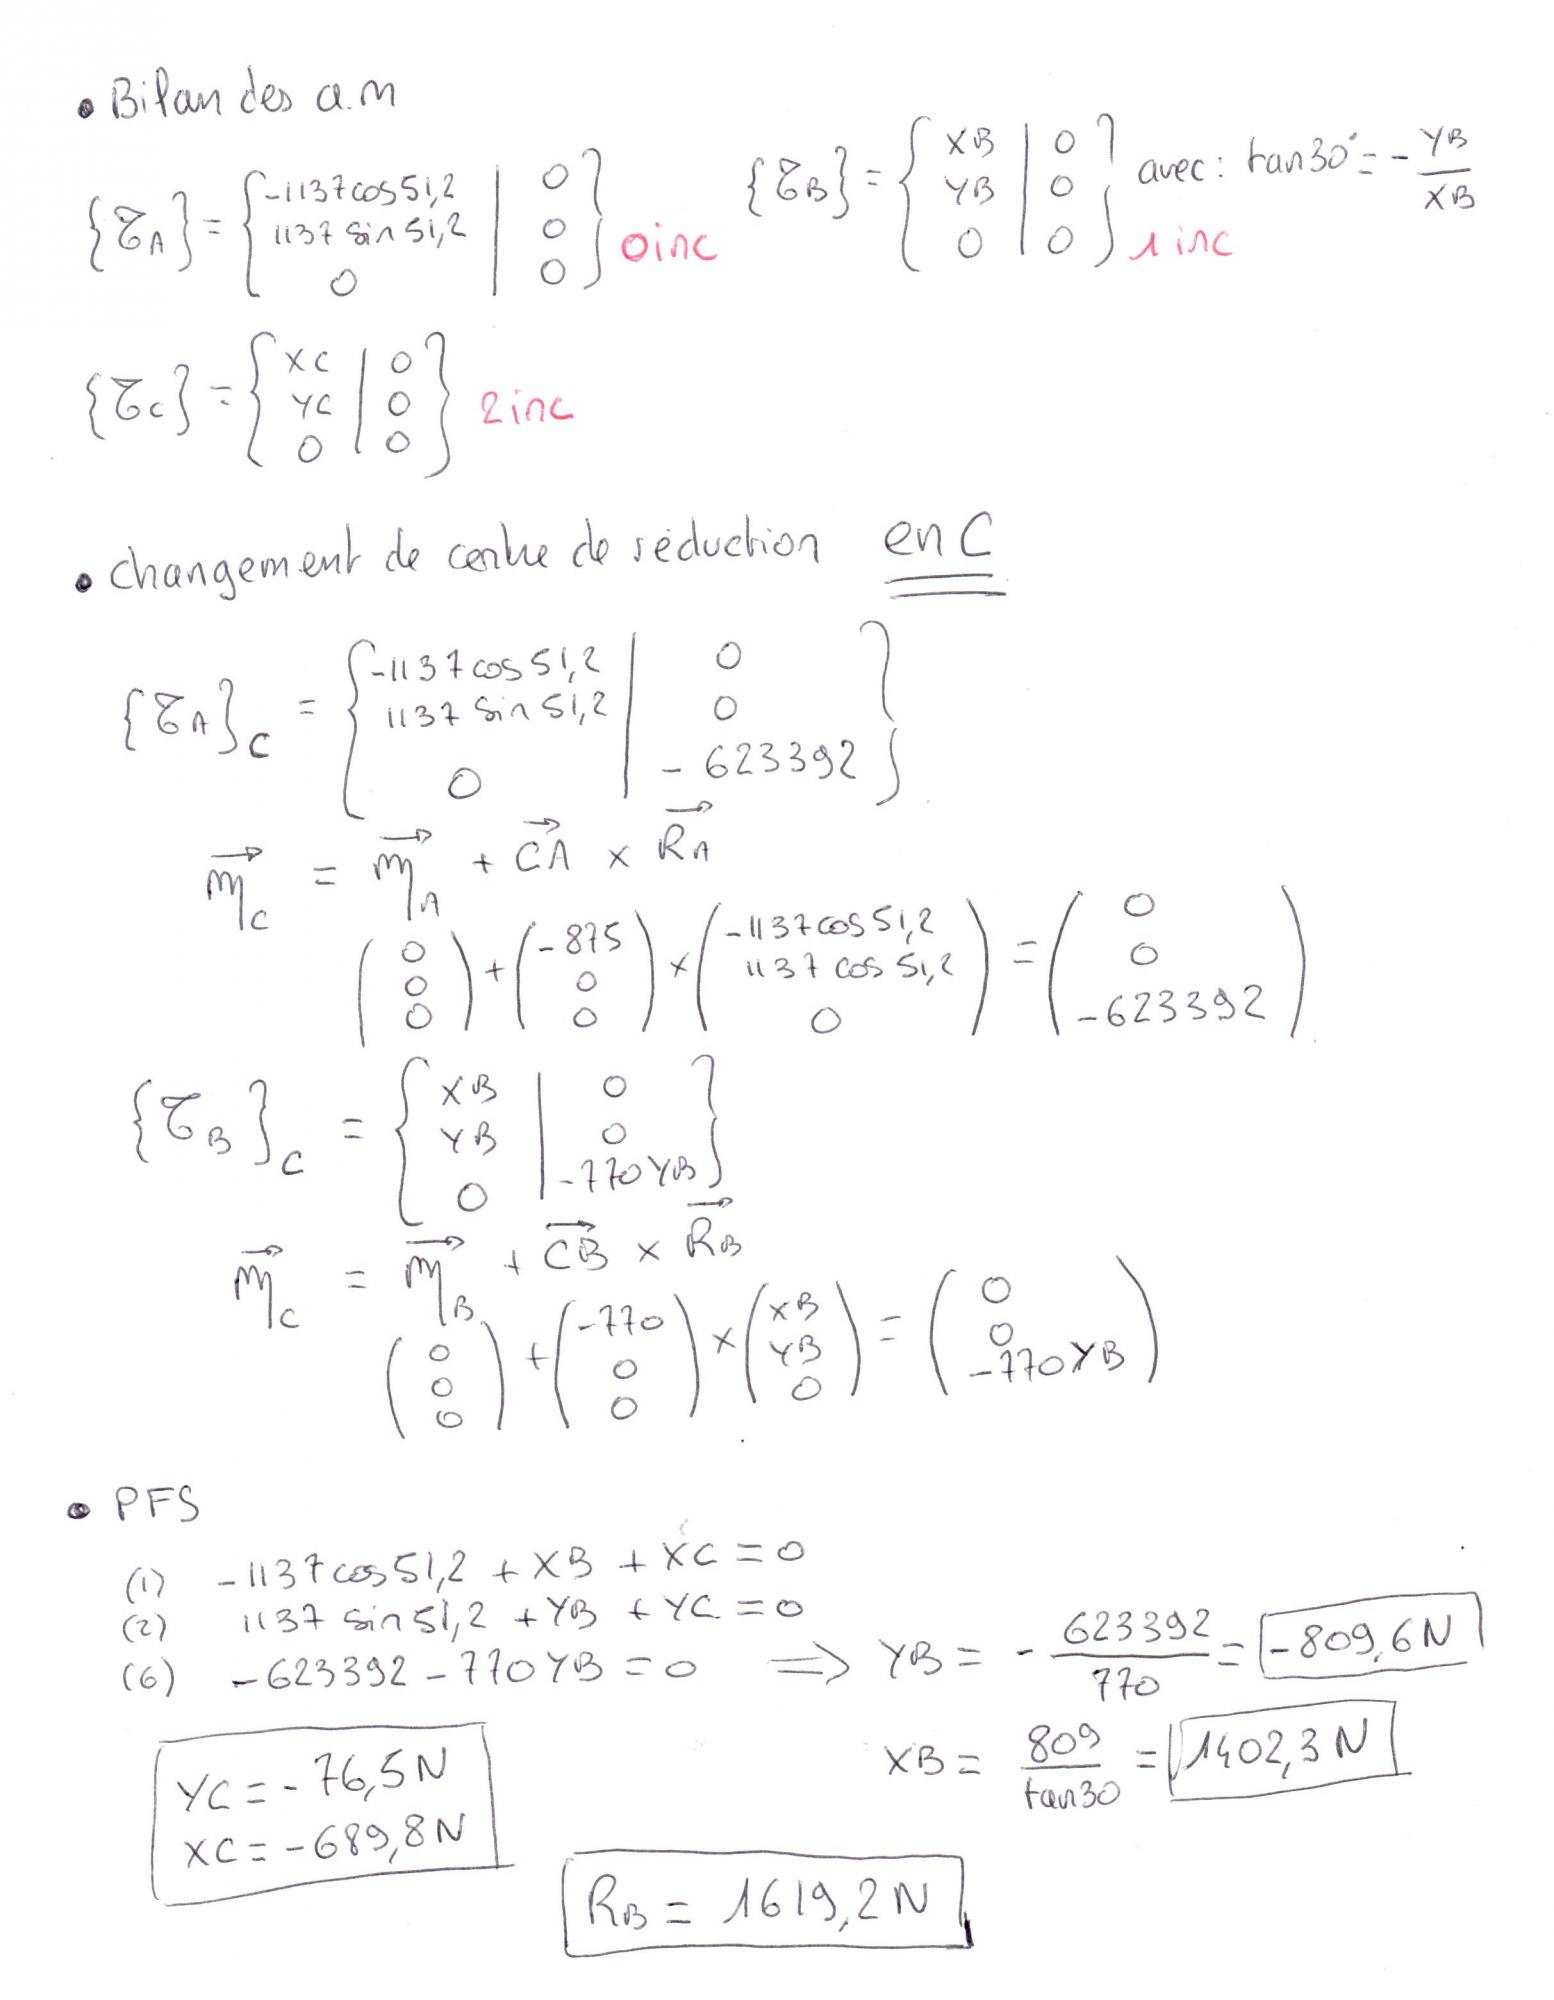 • Bilan des a.m
{𝒯A} = { -1137 cos 51,2 | 0 ; 1137 sin 51,2 | 0 ; 0 | 0 } 0 inc
{𝒯B} = { XB | 0 ; YB | 0 ; 0 | 0 } avec : tan 30° = - YB/XB 1 inc
{𝒯C} = { XC | 0 ; YC | 0 ; 0 | 0 } 2 inc
• changement de centre de réduction en C
{𝒯A}C = { -1137 cos 51,2 | 0 ; 1137 sin 51,2 | 0 ; 0 | -623392 }
→mC = →mA + →CA × →RA
(0 ; 0 ; 0) + (-875 ; 0 ; 0) × (-1137 cos 51,2 ; 1137 cos 51,2 ; 0) = (0 ; 0 ; -623392)
{𝒯B}C = { XB | 0 ; YB | 0 ; 0 | -770 YB }
→mC = →mB + →CB × →RB
(0 ; 0 ; 0) + (-770 ; 0 ; 0) × (XB ; YB ; 0) = (0 ; 0 ; -770 YB)
• PFS
(1) -1137 cos 51,2 + XB + XC = 0
(2) 1137 sin 51,2 + YB + YC = 0
(6) -623392 - 770 YB = 0 ⟹ YB = - 623392/770 = -809,6 N
XB = 809/tan 30 = 1402,3 N
YC = -76,5 N
XC = -689,8 N
RB = 1619,2 N